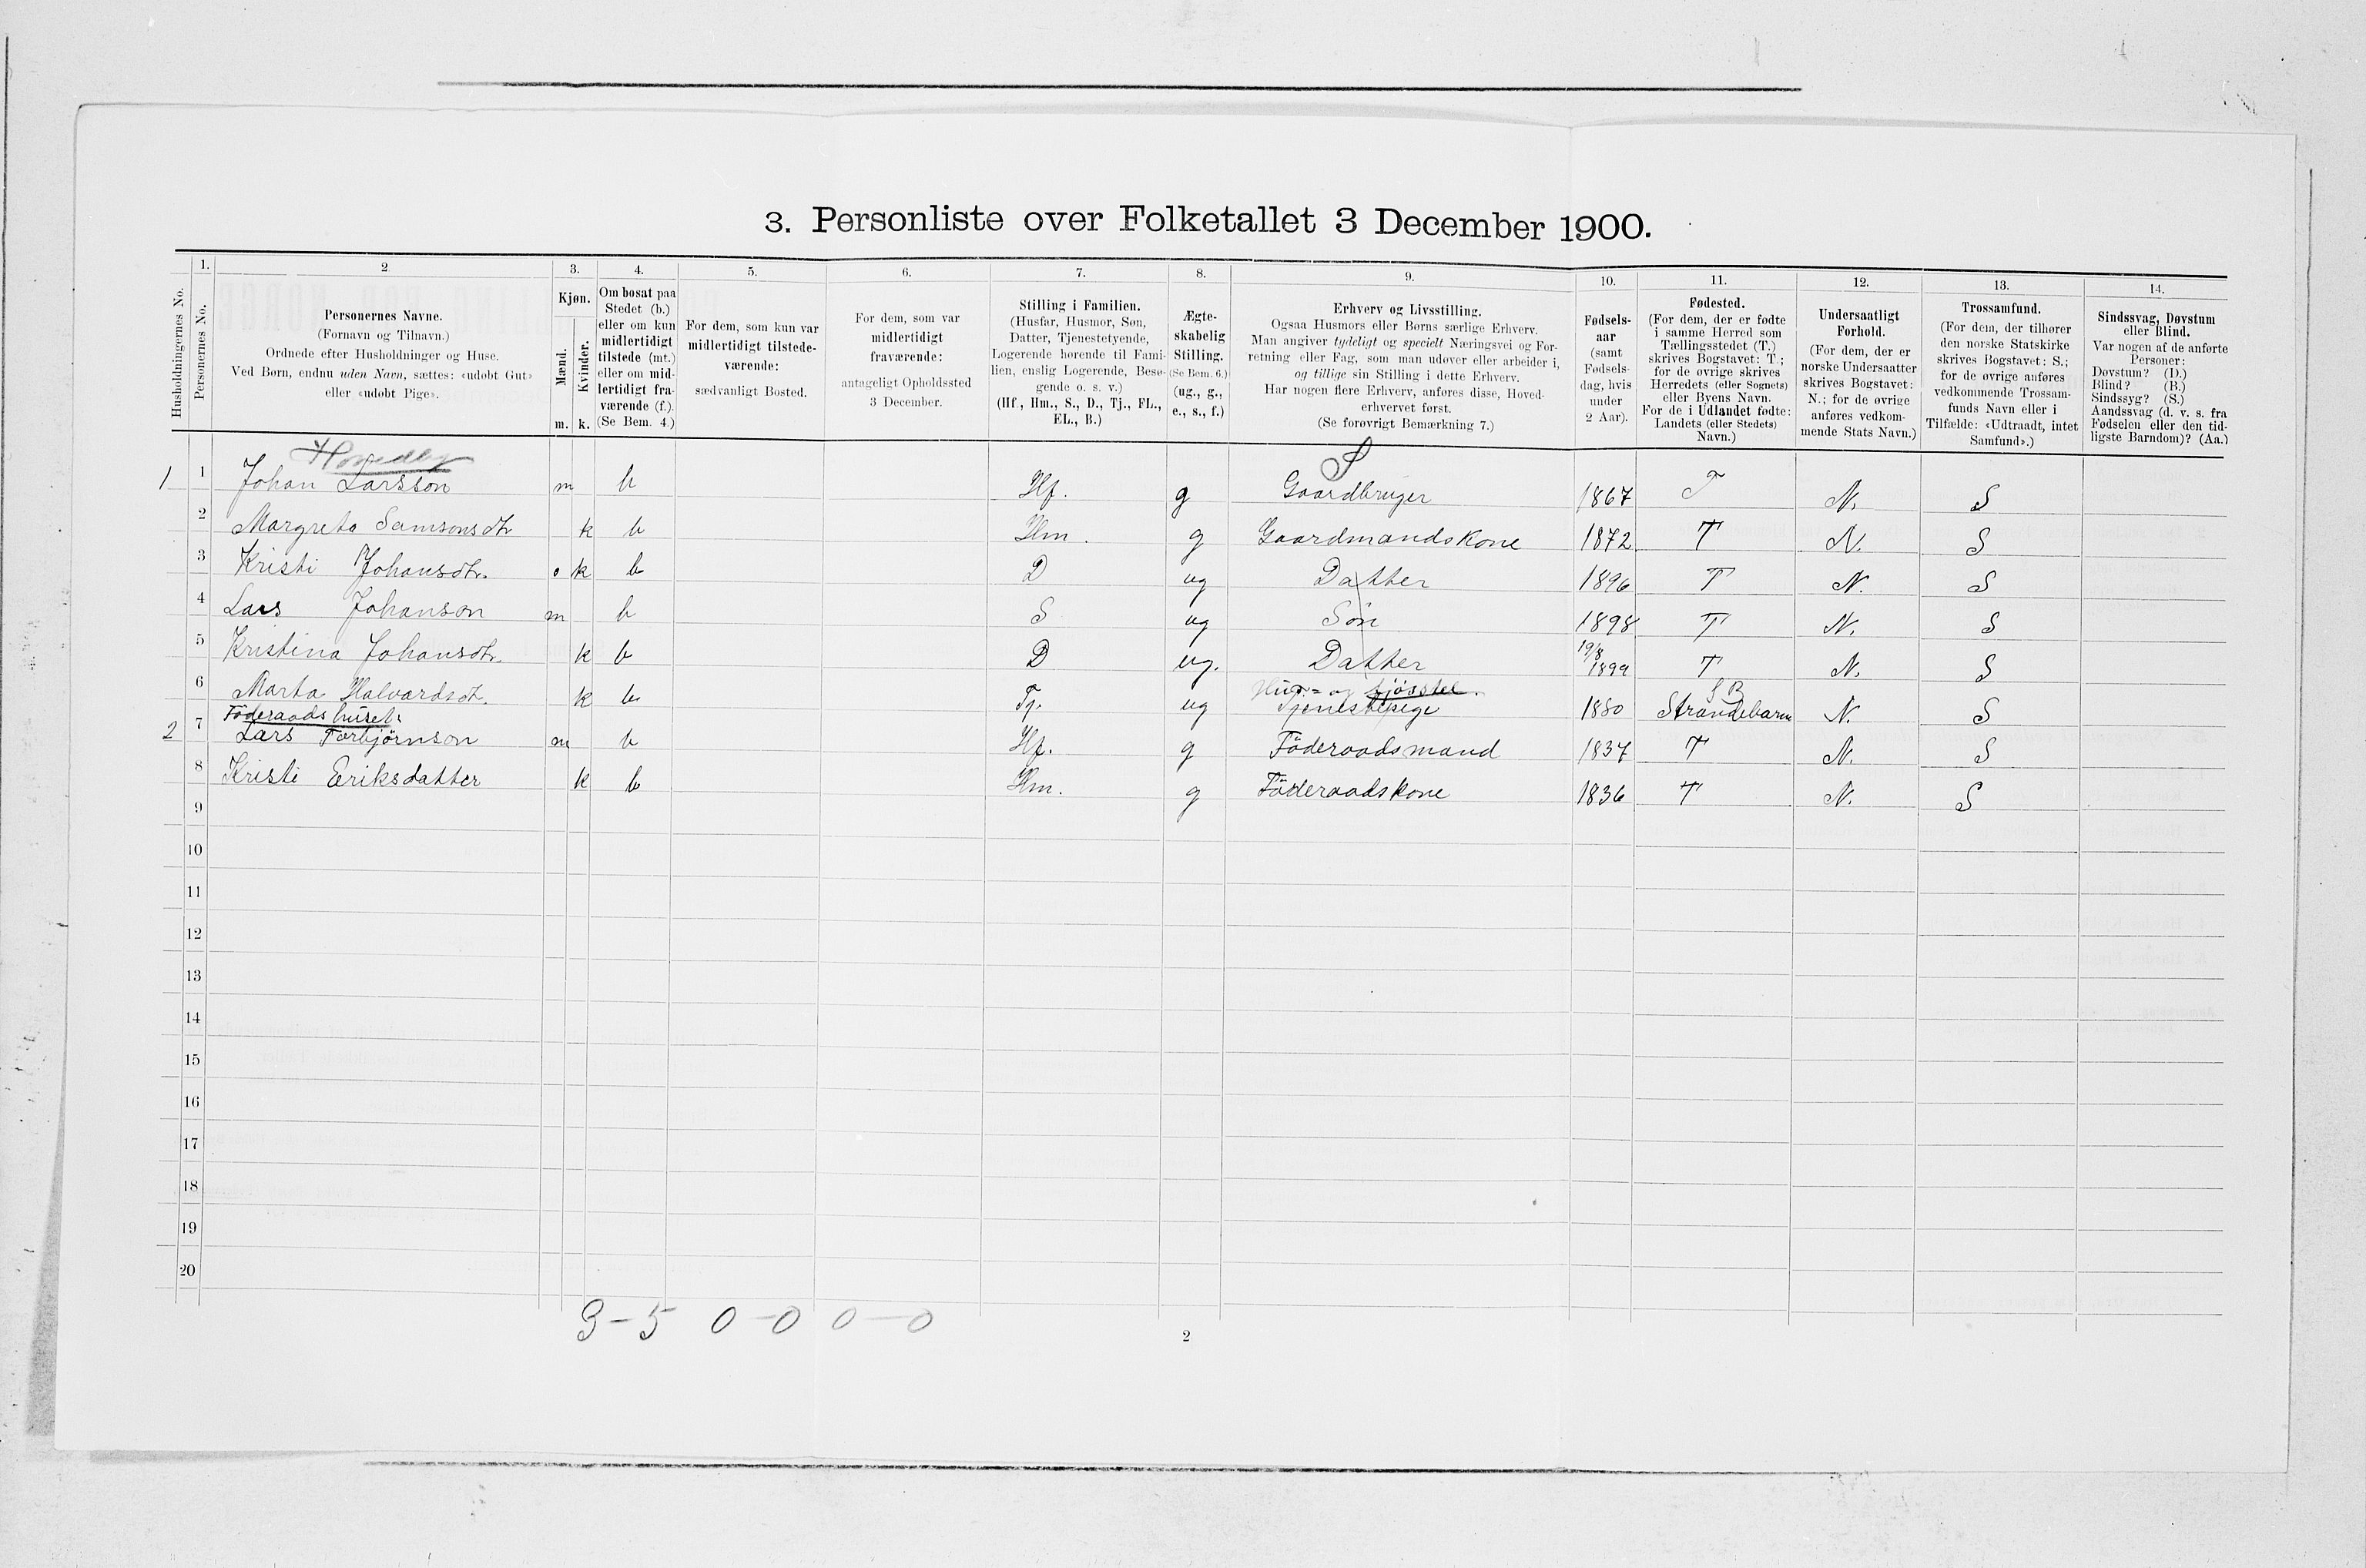 3. Personliste over Folketallet 3 December 1900.
Husholdningernes No.
1. 2 3. 4. 5. 6. 7. 8. 9. 10. 11. 12. 13. 14.
Personernes No.
Personernes Navne.
(Fornavn og Tilnavn.)
Ordnede efter Husholdninger og Huse.
Ved Børn, endnu uden Navn, sættes: «udøbt Gut»
eller «udøbt Pige».
Kjøn.
Mænd.
Kvinder.
m. k.
Om bosat paa
Stedet (b.)
eller om kun
midlertidigt
tilstede (mt.)
eller om mid-
lertidigt fra-
værende (f.).
(Se Bem. 4.)
For dem, som kun var
midlertidigt tilstede-
værende:
sædvanligt Bosted.
For dem, som var
midlertidigt
fraværende:
antageligt Opholdssted
3 December.
Stilling i Familien.
(Husfar, Husmor, Søn,
Datter, Tjenestetyende,
Logerende hørende til Fami-
lien, enslig Logerende, Besø-
gende o. s. v.)
(Hf., Hm., S., D., Tj., FL.,
EL., B.)
Ægte-
skabelig
Stilling.
(Se Bem. 6.)
(ug., g.,
e., s., f.)
Erhverv og Livsstilling.
Ogsaa Husmors eller Børns særlige Erhverv.
Man angiver tydeligt og specielt Næringsvei og For-
retning eller Fag, som man udøver eller arbeider i,
og tillige sin Stilling i dette Erhverv.
Har nogen flere Erhverv, anføres disse, Hoved-
erhvervet først.
(Se forøvrigt Bemærkning 7.)
Fødsels-
aar
(samt
Fødsels-
dag, hvis
under
2 Aar).
Fødested.
(For dem, der er fødte
i samme Herred som
Tællingsstedet (T.)
skrives Bogstavet: T.;
for de øvrige skrives
Herredets (eller Sognets)
eller Byens Navn.
For de i Udlandet fødte:
Landets (eller Stedets)
Navn.)
Undersaatligt
Forhold.
(For dem, der er
norske Undersaatter
skrives Bogstavet:
N.; for de øvrige
anføres vedkom-
mende Stats Navn.)
Trossamfund.
(For dem, der tilhører
den norske Statskirke
skrives Bogstavet: S.;
for de øvrige anføres
vedkommende Trossam-
funds Navn eller i
Tilfælde: «Udtraadt, intet
Samfund».)
Sindssvag, Døvstum
eller Blind.
Var nogen af de anførte
Personer:
Døvstum? (D.)
Blind? (B.)
Sindssyg? (S.)
Aandssvag (d. v. s. fra
Fødselen eller den tid-
ligste Barndom)? (Aa.)
S
1 1 Johan Larsson m b Hf. g Gaardbruger 1867 T N. S
2 Margreta Samsonsdt k b Hm. g Gaardmandskone 1872 T N. S
3 Kristi Johansdtr. k b D ug Datter 1896 T N. S
4 Lars Johanson m b S ug Søn 1898 T N. S
5 Kristina Johansdtr. k b D ug. Datter 19/8 1899 T N. S
Hus= og fjösstel. S B
6 Marta Halvardsdt. k b Tj. ug Tjenestepige 1880 Strandebarm N. S
Föderaadshuset:
2 7 Lars Torbjörnson m b Hf. g Föderaadsmand 1837 T N. S
8 Kristi Eeriksdatter k b Hm. g Föderaadskone 1836 T N. S
9
10
11
12
13
14
15
16
17
18
19
20
3-5 0-0 0-0
2